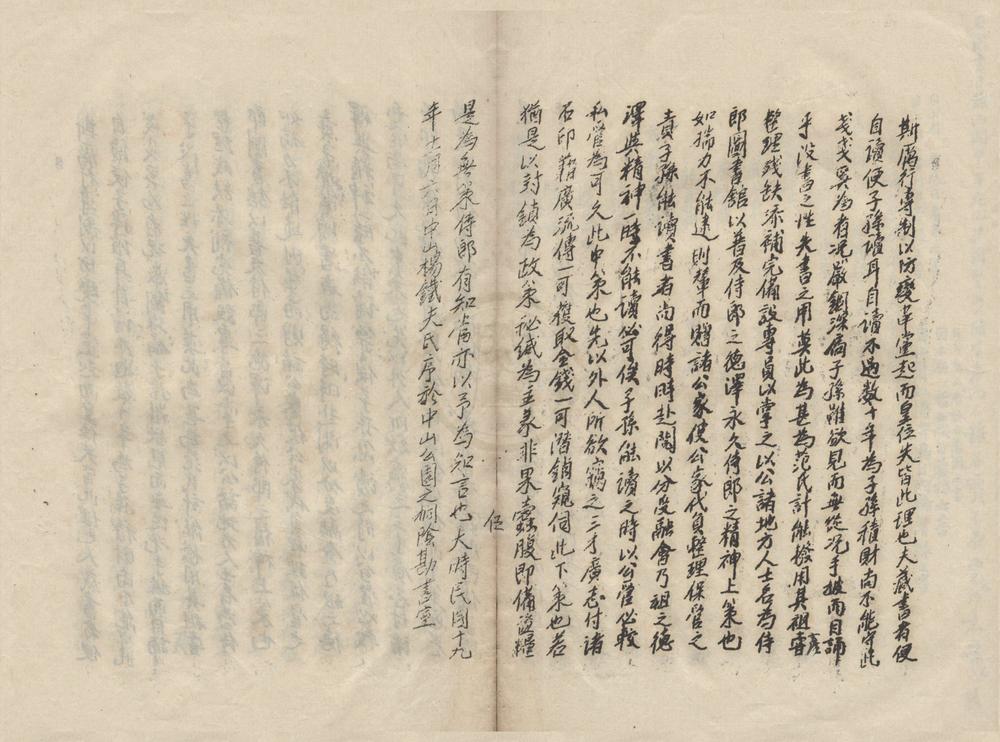 斯厲行專制以防變革黨起而皇位失皆此理也夫藏書者便
自讀便子孫讀耳自讀不過數十年為子孫積財尚不能守此
戔戔奚為者况嚴錮深扃子孫雖欲見而無從况手披而目誦
乎沒書之性失書之用莫此為甚為范氏計能撥用其祖嘗產
整理殘缺添補完備設專員以掌之以公諸地方人士名為侍
郎圖書館以普及侍郎之德澤永久侍郎之精神上策也
如揣力不能逮則舉而贈諸公家使公家代負整理保管之
責子孫能讀書者尚得時時赴閱以分受融會乃祖之德
澤與精神一時不能讀必可俟子孫能讀之時以公管必較
私管為可久此中策也先以外人所欲竊之三才廣志付諸
石印籍廣流傳一可獲取金錢一可潛銷窺伺此下策也若
猶是以封鎖為政策秘緘為主義非果蠹腹即備盜糧
是為無策侍郎有知當亦以予為知言也夫時民國十九
伍
年十一月六日中山楊鐵夫氏序於中山公園之桐陰勘書室